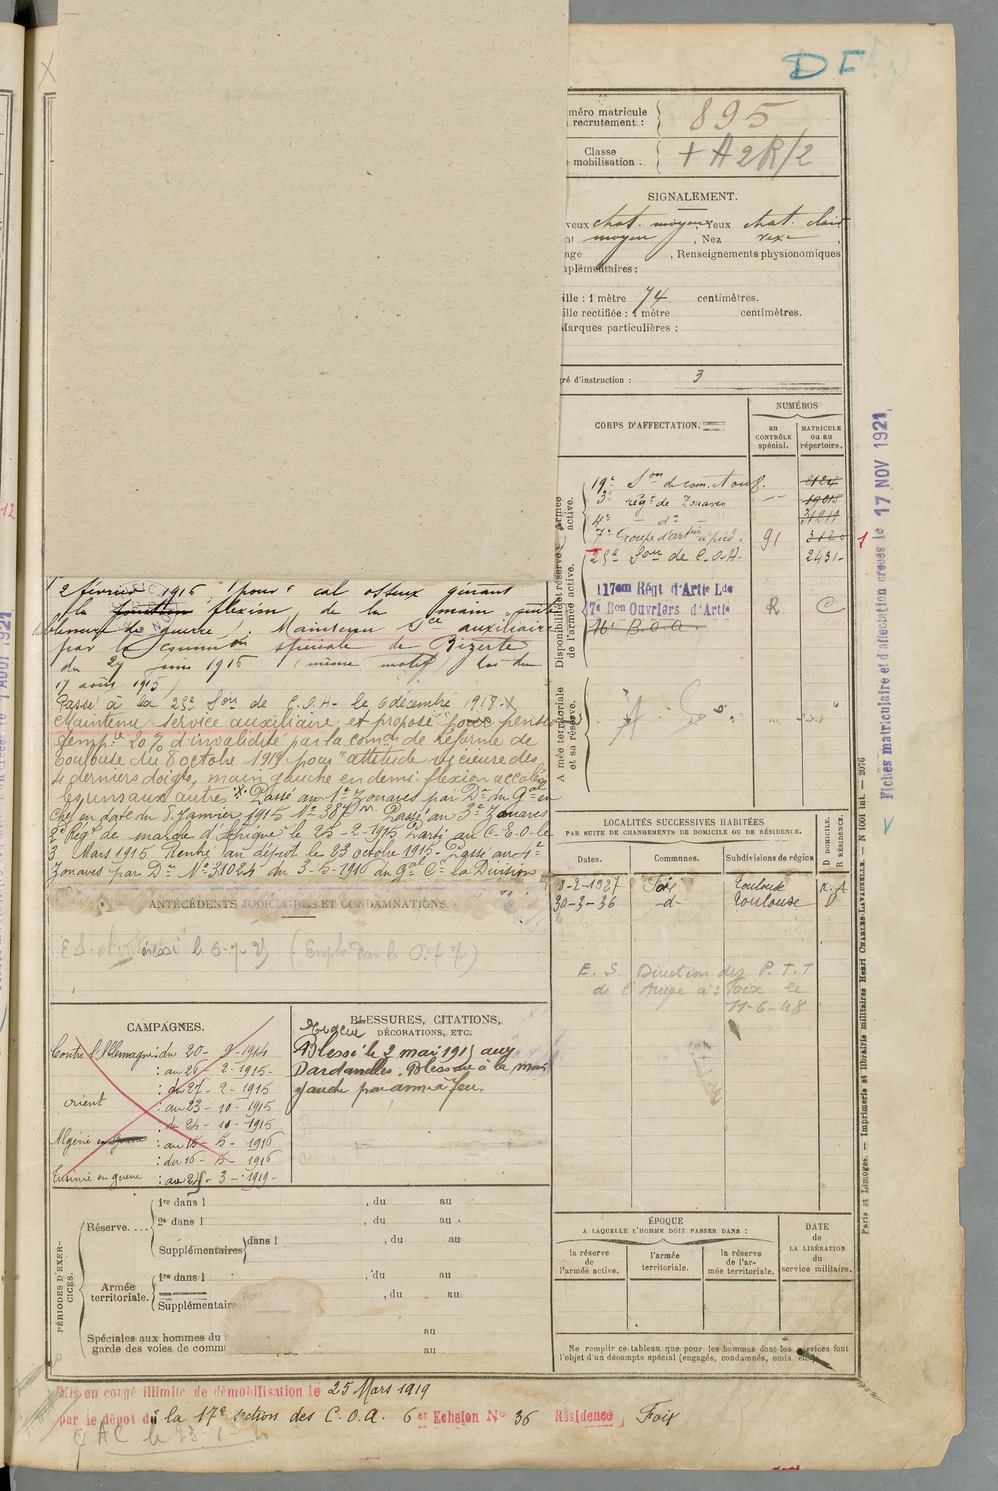 DF
méro matricule
recrutement : 895
Classe
mobilisation : + A 2R/2
SIGNALEMENT.
veux chat. moyen, Yeux chat. clair
nt moyen, Nez
age , Renseignements physionomiques
plémentaires :
ille : 1 mètre 74 centimètres.
ille rectifiée : 1 mètre centimètres.
Marques particulières :
gré d'instruction : 3
CORPS D'AFFECTATION.
NUMÉROS
au CONTRÔLE spécial.
MATRICULE ou au répertoire.
Armée active.
19e Son de com. et ouv.
3e régt de Zouaves
4e - do -
7e Groupe d'artie à pied. 91
25e Son de C.O.A. 2431
Disponibilité et réserve de l'armée active.
117em Régt d'Artie Lde
7e Bon Ouvriers d'Artie R C
16e B.O.A.
A mée territoriale et sa réserve.
Fiches matriculaire et d'affectation crées le 17 NOV 1921
12
1 AOUT 1921
2 février 1916 (pour cal osseux gênant
la fonction flexion de la main suite
blessure de guerre). Maintenu Sce auxiliaire
par la Common spéciale de Bizerte
du 29 juin 1916 (même motif) loi du
17 août 1915)
Passé à la 25e Son de C.O.A. le 6 décembre 1918. X
Maintenu service auxiliaire et proposé pour pension
tempre 20% d'invalidité par la comon de Réforme de
Toulouse du 8 octobre 1919 pour "attitude vicieuse des
4 derniers doigts, main gauche en demi-flexion accolés
les uns aux autres". X Passé au 1e Zouaves par Don du Gal en
Chef en date du 8 Janvier 1915 No 387. Passé au 3e Zouaves
2e Régt de marche d'Afrique le 25-2-1915 Parti au C.E.O. le
3 Mars 1915 Rentré au dépôt le 23 octobre 1915. Passé au 4e
Zouaves par Don No 31024 du 3-5-1916 du Gal Ct la Division
ANTÉCÉDENTS JUDICIAIRES ET CONDAMNATIONS.
LOCALITÉS SUCCESSIVES HABITÉES
PAR SUITE DE CHANGEMENTS DE DOMICILE OU DE RÉSIDENCE.
Dates. Communes. Subdivisions de région D. DOMICILE. R. RÉSIDENCE.
8-2-1927 Foix Toulouse
30-3-36 -d- Toulouse
E. S. Direction des P.T.T
de l'Ariège à : Foix le
11-6-48
CAMPAGNES.
Contre l'Allemagne : du 20- 9-1914
: au 26- 2-1915-
: du 27- 2-1915
Orient : au 23-10-1915
: du 24-10-1915
Algérie en guerre : au 15-5-1916
: du 16-5-1916
Tunisie en guerre : au 25-3-1919-
BLESSURES, CITATIONS,
DÉCORATIONS, ETC.
Blessé le 2 mai 1915 aux
Dardanelles. Blessure à la main
gauche par arme à feu.
PÉRIODES D'EXERCICES.
Réserve....
1re dans l , du au
2e dans l , du au
Supplémentaires dans l , du au
Armée territoriale.
1re dans l , du au
, du au
Supplémentaire
Spéciales aux hommes du au
garde des voies de comm au
ÉPOQUE
A LAQUELLE L'HOMME DOIT PASSER DANS :
la réserve de l'armée active.
l'armée territoriale.
la réserve de l'armée territoriale.
DATE de LA LIBÉRATION du service militaire.
Ne remplir ce tableau que pour les hommes dont les services font
l'objet d'un décompte spécial (engagés, condamnés, omis, etc.).
Paris et Limoges. — Imprimerie et librairie militaires Henri CHARLES-LAVAUZELLE. — N 1001 int. — 2076
Mis en congé illimité de démobilisation le 25 Mars 1919
par le dépôt du la 17e section des C.O.A. 6 er Echelon No 36 Résidence, Foix